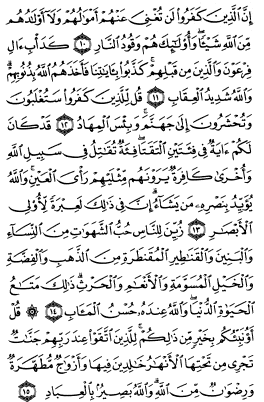 إِنَّ ٱلَّذِينَ كَفَرُواْ لَن تُغْنِىَ عَنْهُمْ أَمْوَٰلُهُمْ وَلَآ أَوْلَٰدُهُم
مِّنَ ٱللَّهِ شَيْـًٔا ۖ وَأُوْلَٰٓئِكَ هُمْ وَقُودُ ٱلنَّارِ ١٠ كَدَأْبِ ءَالِ
فِرْعَوْنَ وَٱلَّذِينَ مِن قَبْلِهِمْ ۚ كَذَّبُواْ بِـَٔايَٰتِنَا فَأَخَذَهُمُ ٱللَّهُ بِذُنُوبِهِمْ ۗ
وَٱللَّهُ شَدِيدُ ٱلْعِقَابِ ١١ قُل لِّلَّذِينَ كَفَرُواْ سَتُغْلَبُونَ
وَتُحْشَرُونَ إِلَىٰ جَهَنَّمَ ۚ وَبِئْسَ ٱلْمِهَادُ ١٢ قَدْ كَانَ
لَكُمْ ءَايَةٌ فِى فِئَتَيْنِ ٱلْتَقَتَا ۖ فِئَةٌ تُقَٰتِلُ فِى سَبِيلِ ٱللَّهِ
وَأُخْرَىٰ كَافِرَةٌ يَرَوْنَهُم مِّثْلَيْهِمْ رَأْىَ ٱلْعَيْنِ ۚ وَٱللَّهُ
يُؤَيِّدُ بِنَصْرِهِۦ مَن يَشَآءُ ۗ إِنَّ فِى ذَٰلِكَ لَعِبْرَةً لِّأُوْلِى
ٱلْأَبْصَٰرِ ١٣ زُيِّنَ لِلنَّاسِ حُبُّ ٱلشَّهَوَٰتِ مِنَ ٱلنِّسَآءِ
وَٱلْبَنِينَ وَٱلْقَنَٰطِيرِ ٱلْمُقَنطَرَةِ مِنَ ٱلذَّهَبِ وَٱلْفِضَّةِ
وَٱلْخَيْلِ ٱلْمُسَوَّمَةِ وَٱلْأَنْعَٰمِ وَٱلْحَرْثِ ۗ ذَٰلِكَ مَتَٰعُ
ٱلْحَيَوٰةِ ٱلدُّنْيَا ۖ وَٱللَّهُ عِندَهُۥ حُسْنُ ٱلْمَـَٔابِ ١٤ ۞ قُلْ
أَؤُنَبِّئُكُم بِخَيْرٍ مِّن ذَٰلِكُمْ ۚ لِلَّذِينَ ٱتَّقَوْاْ عِندَ رَبِّهِمْ جَنَّٰتٌ
تَجْرِى مِن تَحْتِهَا ٱلْأَنْهَٰرُ خَٰلِدِينَ فِيهَا وَأَزْوَٰجٌ مُّطَهَّرَةٌ
وَرِضْوَٰنٌ مِّنَ ٱللَّهِ ۗ وَٱللَّهُ بَصِيرٌۢ بِٱلْعِبَادِ ١٥